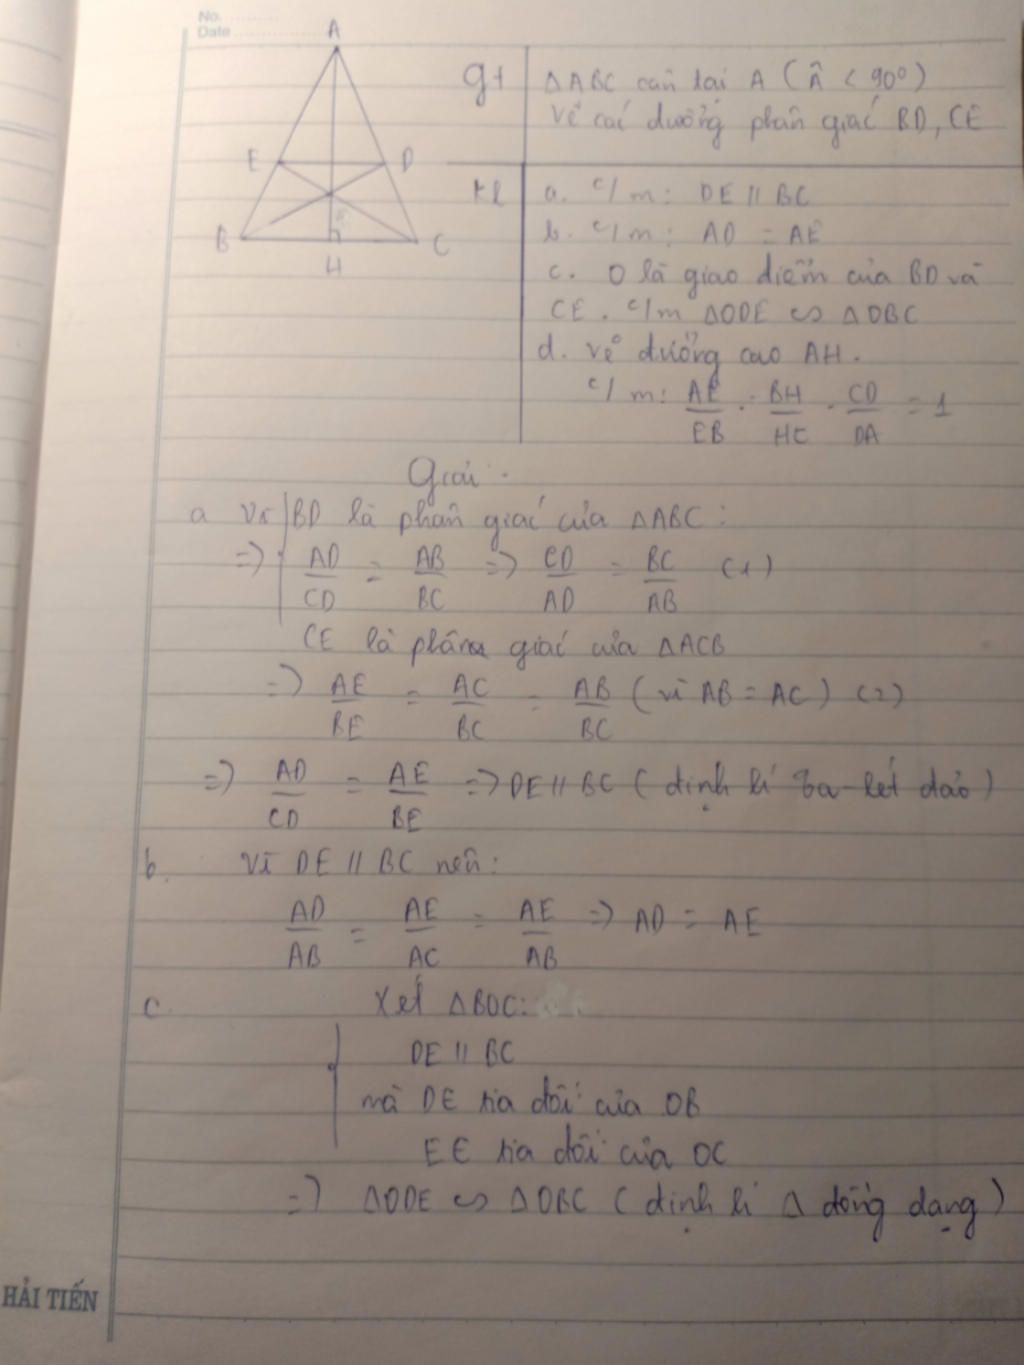 No.
Date
A
E
D
B
C
H
gt
ΔABC cân tại A (Â < 90°)
Vẽ các đường phân giác BD, CE
kl
a. c/m: DE // BC
b. c/m: AD = AE
c. O là giao điểm của BD và
CE. c/m ΔODE ∽ ΔOBC
d. vẽ đường cao AH.
c/m: AE/EB . BH/HC . CD/DA = 1
Giải.
a Vì BD là phân giác của ΔABC:
=> AD/CD = AB/BC => CD/AD = BC/AB (1)
CE là phân giác của ΔACB
=> AE/BE = AC/BC = AB/BC (vì AB = AC) (2)
=> AD/CD = AE/BE => DE // BC (định lí Ta-lét đảo)
b. Vì DE // BC nên:
AD/AB = AE/AC = AE/AB => AD = AE
c. Xét ΔBOC:
DE // BC
mà DE tia đối của OB
EE tia đối của OC
=> ΔODE ∽ ΔOBC (định lí Δ đồng dạng)
HẢI TIẾN